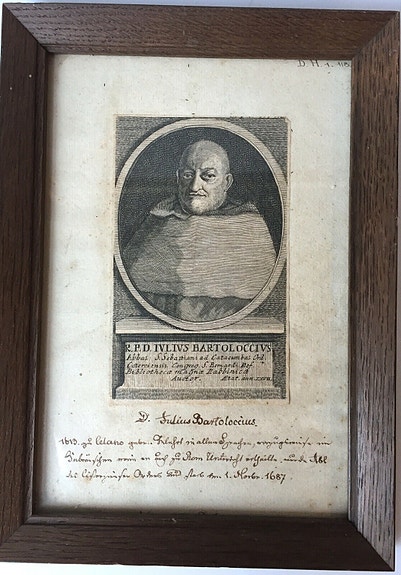 R.P.D. IVLIVS BARTOLOCCIVS
Abbas S. Sebastiani ad Catacumbas Ord.
Cisterciensis Congreg. S. Bernardi Ref.
Bibliothecæ magnæ Rabbinicæ
Auctor. Ætat. ann.
D. Julius Bartoloccius.
1613. zu Celano gebr. in allen Sprachen, vorzugsweise im
Hebräischen worin er auch zu Rom Unterricht ertheilte, wurde Abt
des Cisterzienser Ordens und starb den 1. Novbr. 1687.